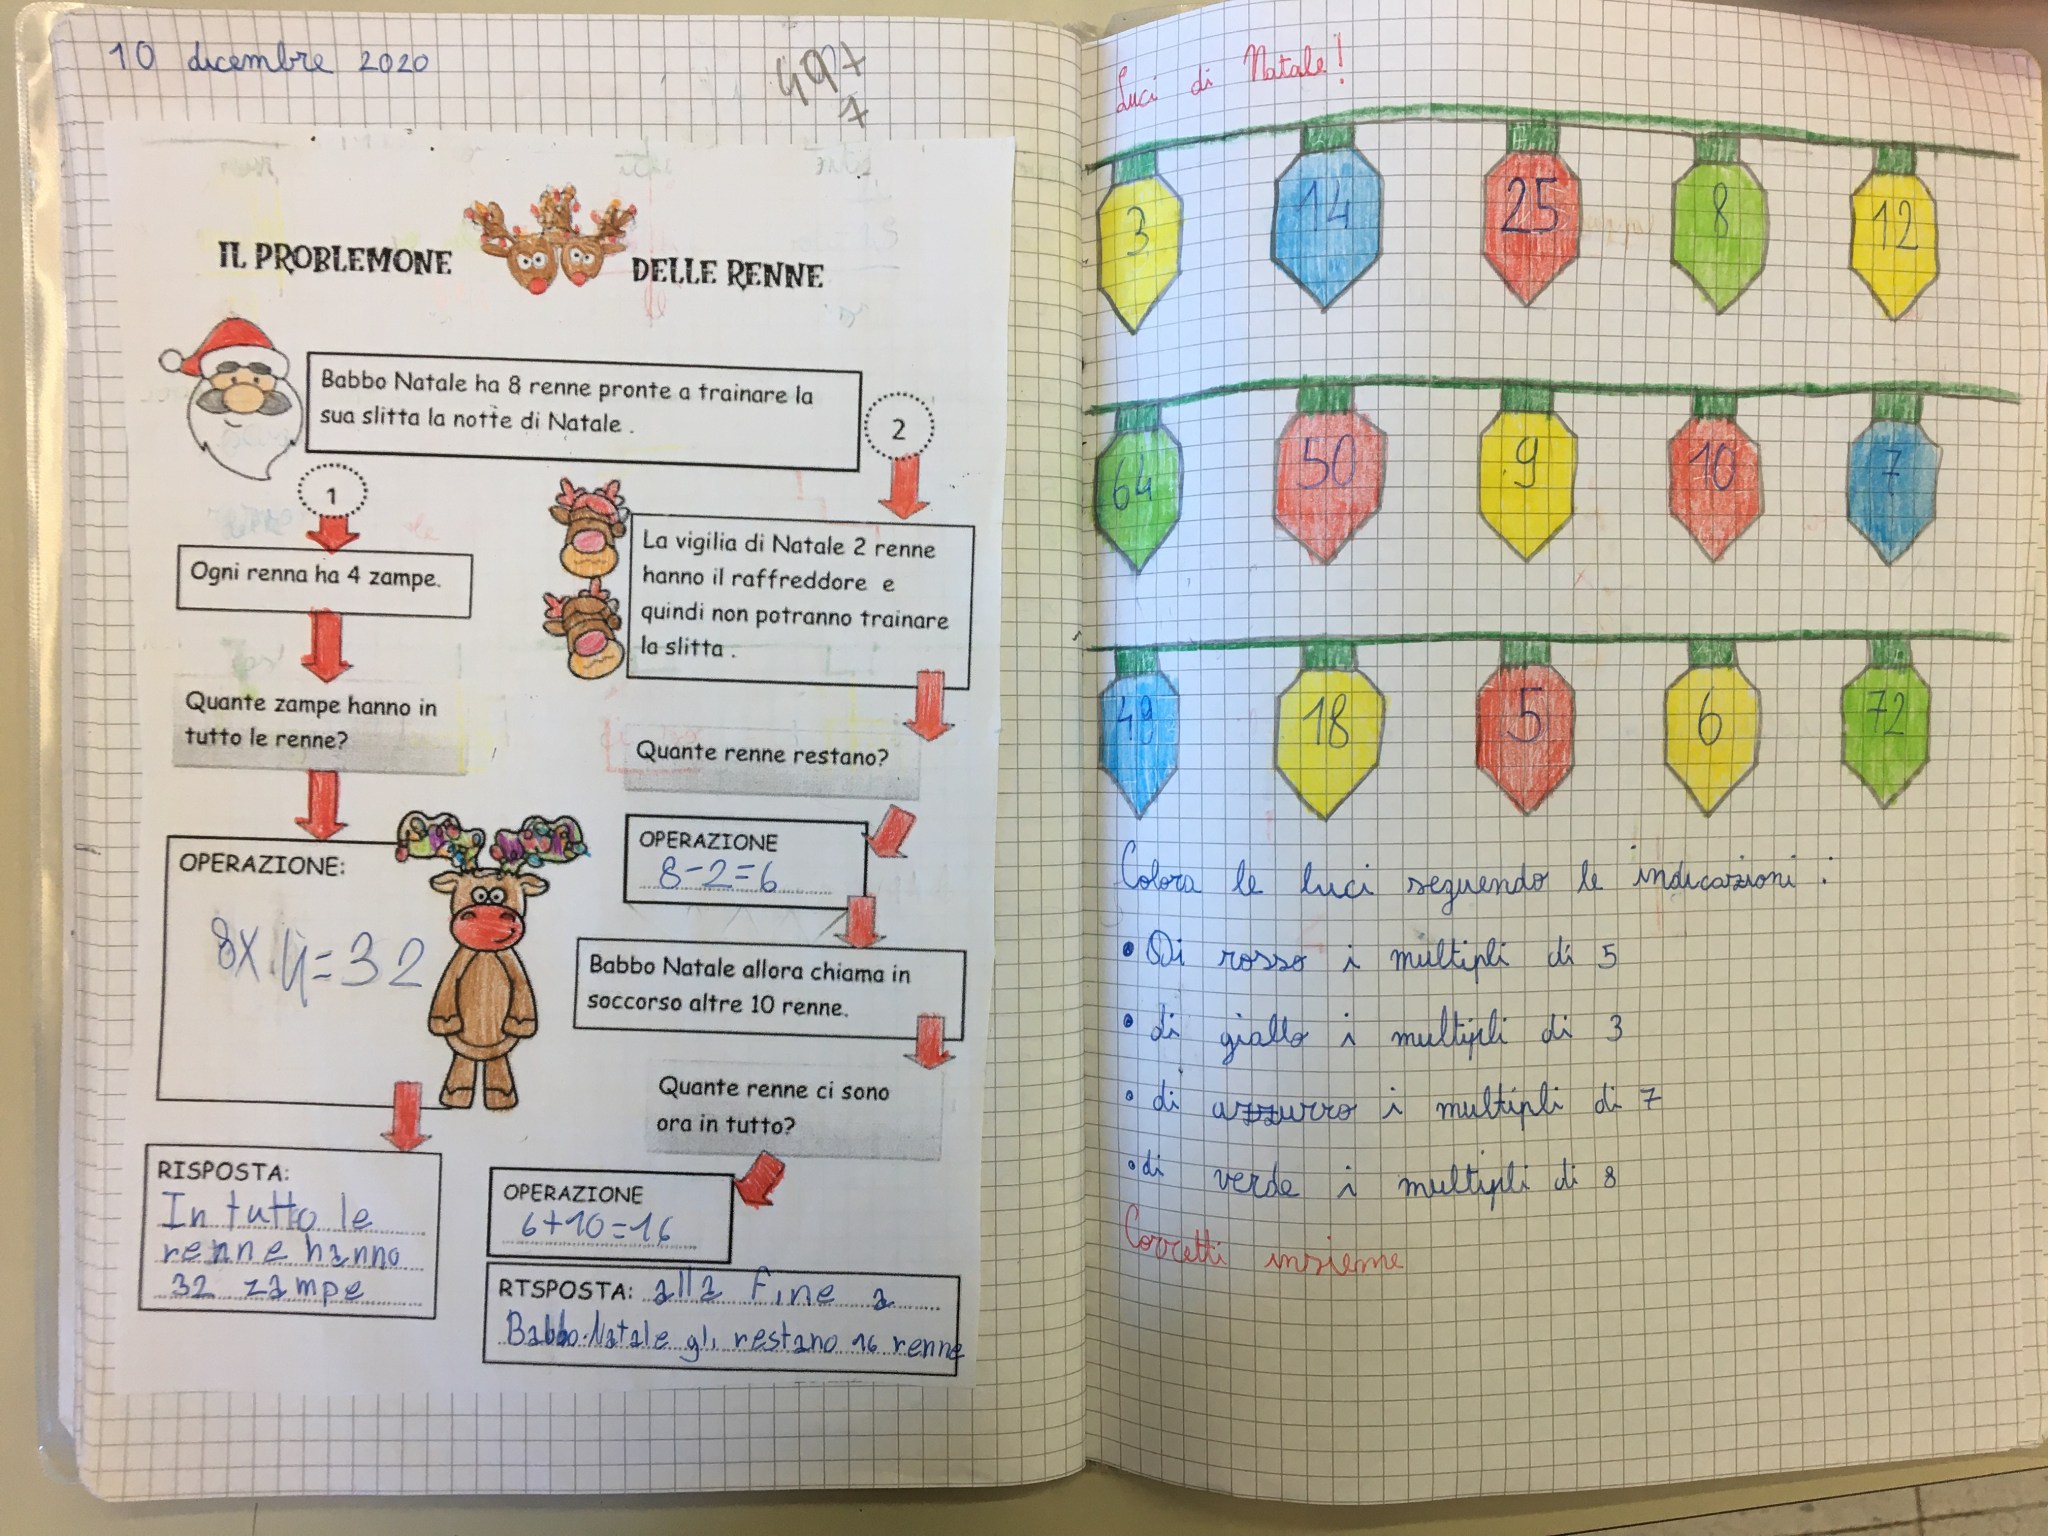 10 dicembre 2020
497
7
IL PROBLEMONE DELLE RENNE
Babbo Natale ha 8 renne pronte a trainare la
sua slitta la notte di Natale .
1
Ogni renna ha 4 zampe.
Quante zampe hanno in
tutto le renne?
OPERAZIONE:
8x4=32
RISPOSTA:
In tutto le
renne hanno
32 zampe
2
La vigilia di Natale 2 renne
hanno il raffreddore e
quindi non potranno trainare
la slitta .
Quante renne restano?
OPERAZIONE
8-2=6
Babbo Natale allora chiama in
soccorso altre 10 renne.
Quante renne ci sono
ora in tutto?
OPERAZIONE
6+10=16
RISPOSTA: alla fine a
Babbo Natale gli restano 16 renne
Luci di Natale!
3 14 25 8 12
64 50 9 10 7
49 18 5 6 72
Colora le luci seguendo le indicazioni:
• Di rosso i multipli di 5
• di giallo i multipli di 3
• di azzurro i multipli di 7
• di verde i multipli di 8
Corretti insieme